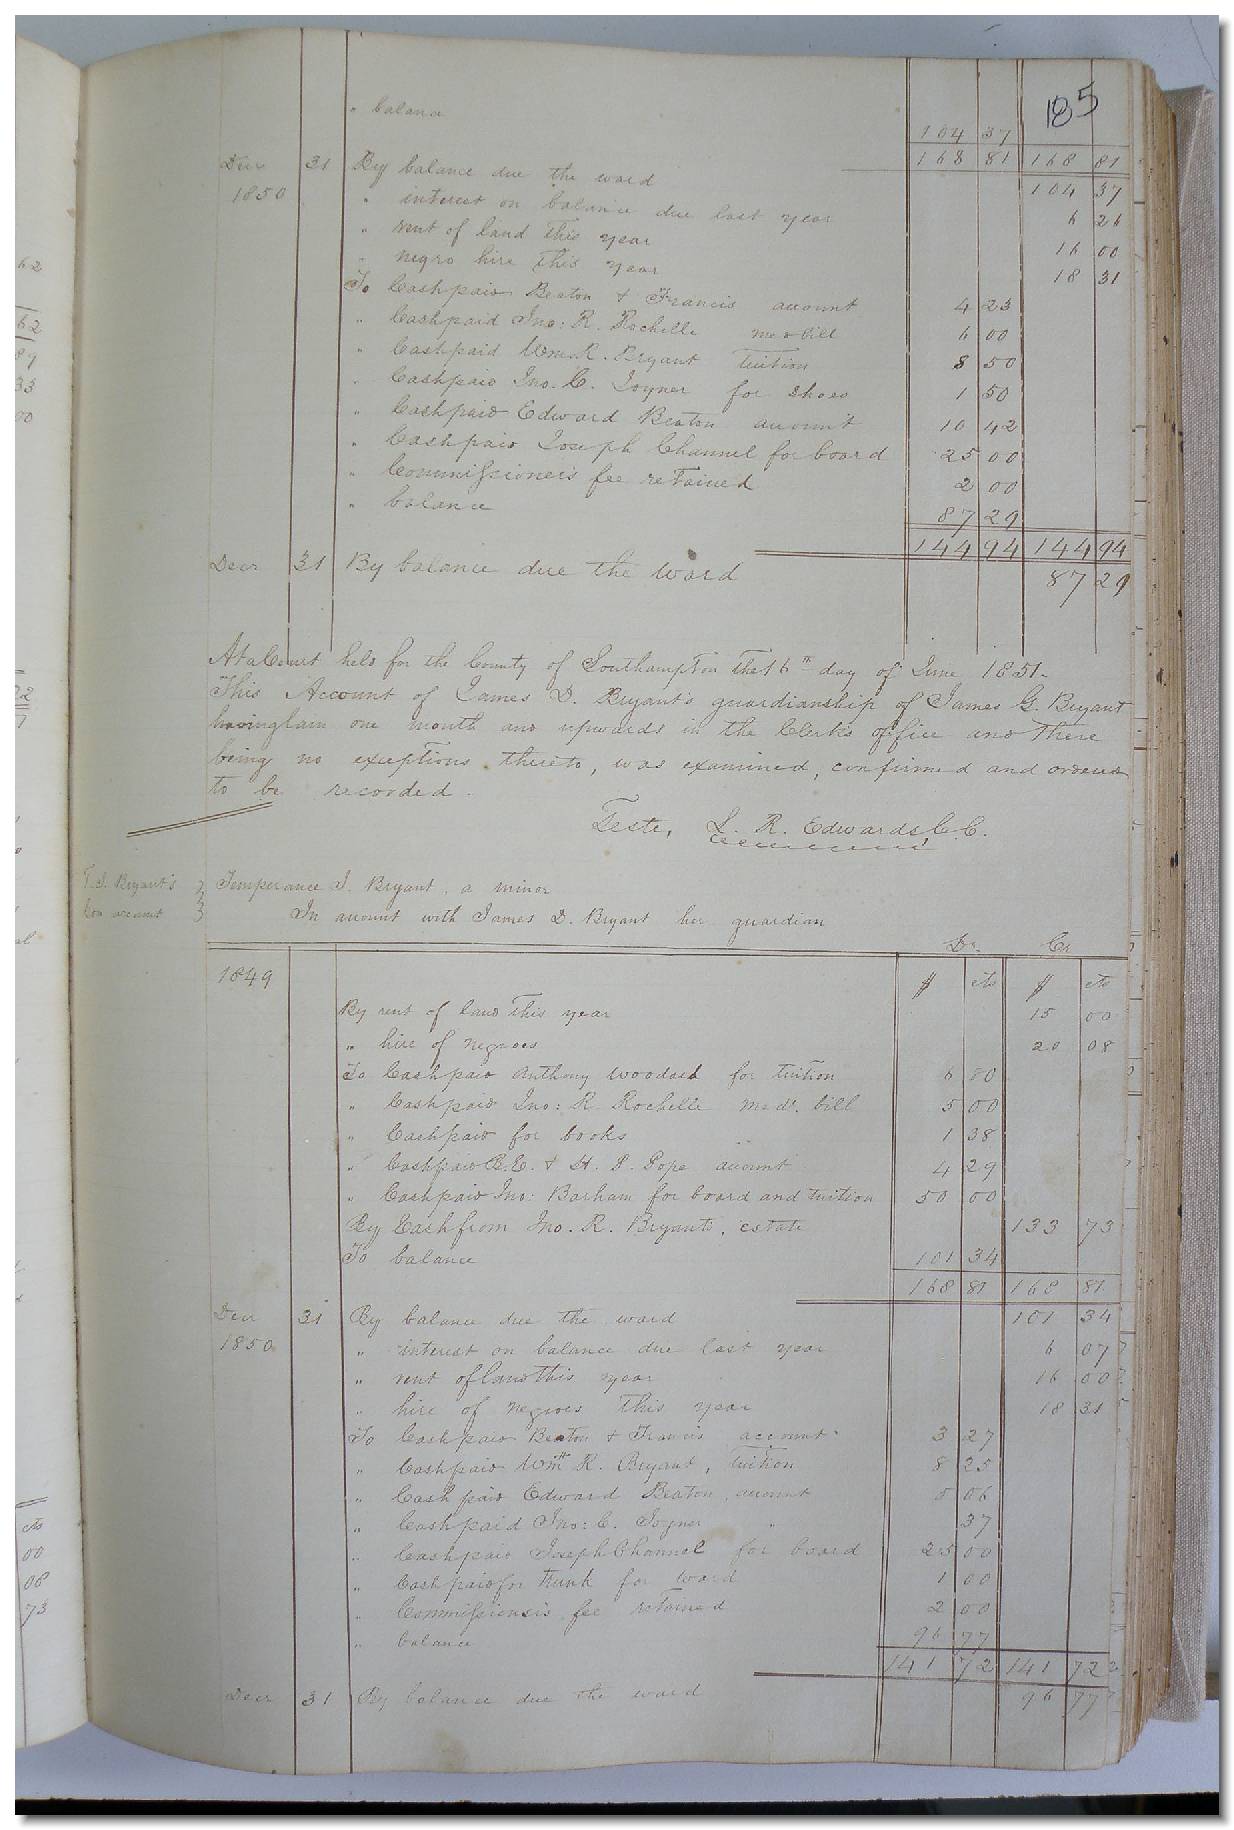 185
" balance 104 37
168 81 168 81
Decr 31 By balance due the ward 104 37
1850 " interest on balance due last year 6 26
" rent of land this year 16 00
" negro hire this year 18 31
To Cash paid Beaton & Francis account 4 23
" Cash paid Jno: R. Rochelle med bill 6 00
" Cash paid Wm. R. Bryant Tuition 8 50
" Cash paid Jno. C. Joyner for shoes 1 50
" Cash paid Edward Beaton account 10 42
" Cash paid Joseph Channel for board 25 00
" Commissioners fee retained 2 00
" balance 87 29
144 94 144 94
Decr 31 By balance due the ward 87 29
At a Court held for the County of Southampton the 16th day of June 1851.
This Account of James D. Bryant's guardianship of James G. Bryant
having lain one month and upwards in the Clerk's office and there
being no exceptions thereto, was examined, confirmed and ordered
to be recorded.
Teste, L. R. Edwards C. C.
T. J. Bryant's Temperance J. Bryant, a minor
Gdn account In account with James D. Bryant her guardian
Dr. Cr
1849 $ cts $ cts
By rent of land this year 15 00
" hire of negroes 20 08
To Cash paid Anthony Woodard for tuition 6 80
" Cash paid Jno: R. Rochelle medl. bill 5 00
" Cash paid for books 1 38
" Cash paid B. E. & H. P. Pope account 4 29
" Cash paid Jno: Barham for board and tuition 50 00
By Cash from Jno. R. Bryants, estate 133 73
To balance 101 34
168 81 168 81
Decr 31 By balance due the ward 101 34
1850 " interest on balance due last year 6 07
" rent of land this year 16 00
" hire of negroes this year 18 31
To Cash paid Beaton & Francis account 3 27
" Cash paid Wm R. Bryant, Tuition 8 25
" Cash paid Edward Beaton account 5 06
" Cash paid Jno: C. Joyner " 37
" Cash paid Joseph Channel for board 25 00
" Cash paid for trunk for ward 1 00
" Commissioners fee retained 2 00
" balance 96 77
141 72 141 72
Decr 31 By balance due the ward 96 77